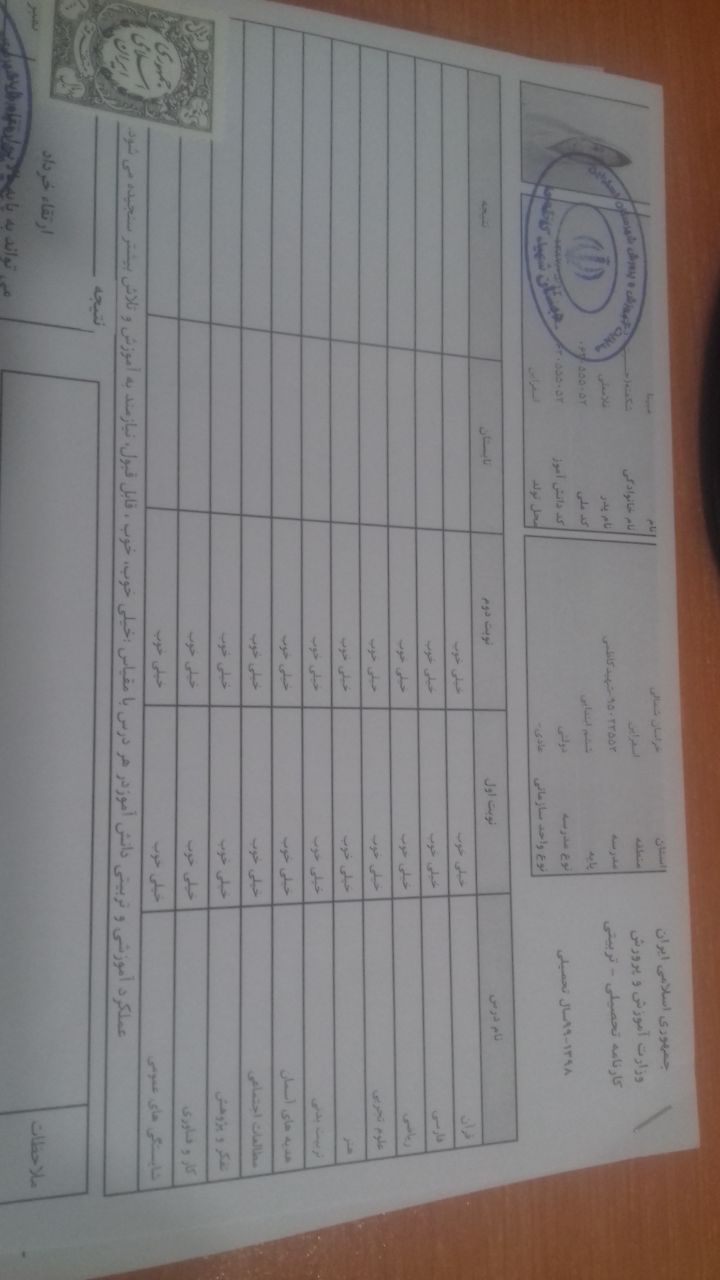 جمهوری اسلامی ایران
وزارت آموزش و پرورش
کارنامه تحصیلی - تربیتی
سال تحصیلی ۹۹-۱۳۹۸
استان خراسان شمالی
منطقه اسفراین
مدرسه ۹۵۰۲۲۵۵۲-شهید کاظمی
پایه ششم ابتدایی
نوع مدرسه دولتی
نوع واحد سازمانی عادی-
نام مبینا
نام خانوادگی
نام پدر غلامعلی
کد ملی
کد دانش آموز
محل تولد اسفراین
نام درس نوبت اول نوبت دوم تابستان نتیجه
قرآن خیلی خوب خیلی خوب
فارسی خیلی خوب خیلی خوب
ریاضی خیلی خوب خیلی خوب
علوم تجربی خیلی خوب خیلی خوب
هنر خیلی خوب خیلی خوب
تربیت بدنی خیلی خوب خیلی خوب
هدیه های آسمان خیلی خوب خیلی خوب
مطالعات اجتماعی خیلی خوب خیلی خوب
تفکر و پژوهش خیلی خوب خیلی خوب
کار و فناوری خیلی خوب خیلی خوب
شایستگی های عمومی خیلی خوب خیلی خوب
عملکرد آموزشی و تربیتی دانش آموز در هر درس با مقیاس :خیلی خوب، خوب ، قابل قبول، نیازمند به آموزش و تلاش بیشتر سنجیده می شود.
ملاحظات
نتیجه
ارتقاء خرداد
می تواند به پایه
جمهوری
اسلامی
ایران
ریال